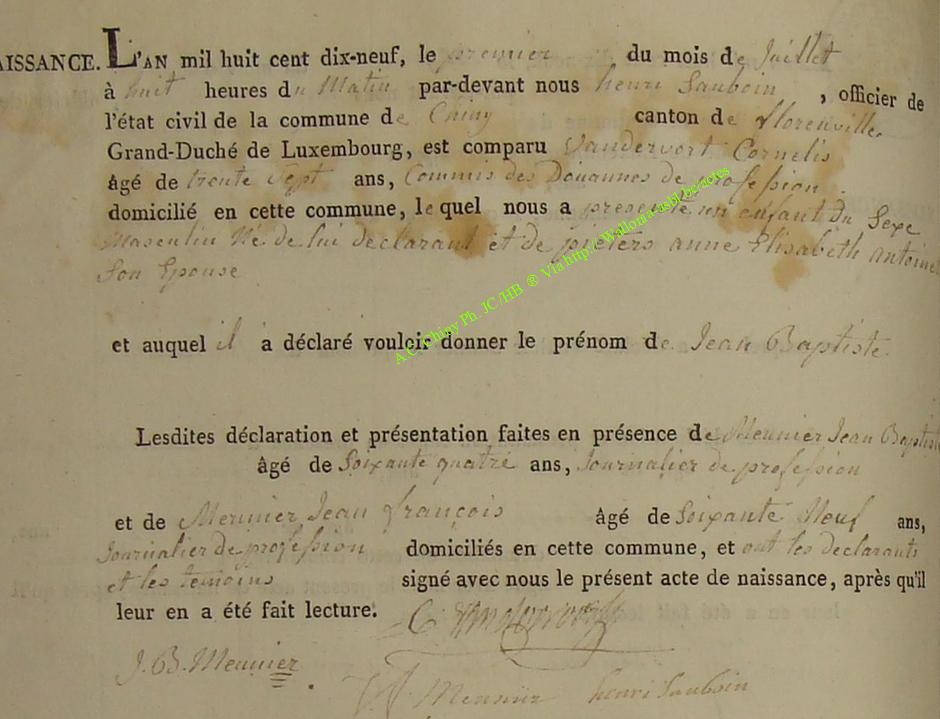 AISSANCE. L'AN mil huit cent dix-neuf, le premier du mois de Juillet
à huit heures du Matin par-devant nous henri Sauboin , officier de
l'état civil de la commune de Chiny canton de florenville
Grand-Duché de Luxembourg, est comparu Vandervort Cornelis
âgé de trente Sept ans, Commis des Douannes de profession
domicilié en cette commune, le quel nous a presenté un enfant du Sexe
Masculin Né de lui declarant et de pieters anne Elisabeth antoine
Son Epouse
A.C. Chiny Ph. JC/HB ® Via http://Wallonia-asbl.be/actes
et auquel il a déclaré vouloir donner le prénom de Jean Baptiste.
Lesdites déclaration et présentation faites en présence de Meunier Jean Baptiste
âgé de Soixante quatre ans, Journalier de profession
et de Meunier Jean françois âgé de Soixante Neuf ans,
Journalier de profession domiciliés en cette commune, et ont les declarants
et les temoins signé avec nous le présent acte de naissance, après qu'il
leur en a été fait lecture.
J. B. Meunier
Meunier henri Sauboin